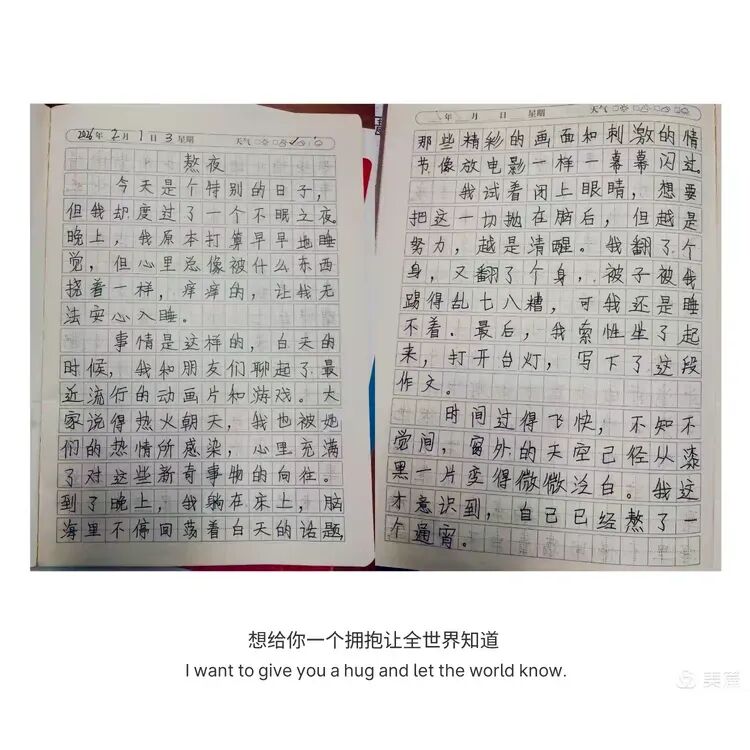 2026年2月1日3星期 天气
熬夜
今天是个特别的日子，
但我却度过了一个不眠之夜。
晚上，我原本打算早早地睡
觉，但心里总像被什么东西
挠着一样，痒痒的，让我无
法安心入睡。
事情是这样的，白天的
时候，我和朋友们聊起了最
近流行的动画片和游戏。大
家说得热火朝天，我也被她
们的热情所感染，心里充满
了对这些新奇事物的向往。
到了晚上，我躺在床上，脑
海里不停回荡着白天的话题，
年 月 日 星期 天气
那些精彩的画面和刺激的情
节像放电影一样一幕幕闪过。
我试着闭上眼睛，想要
把这一切抛在脑后，但越是
努力，越是清醒。我翻了个
身，又翻了个身，被子被我
踢得乱七八糟，可我还是睡
不着。最后，我索性坐了起
来，打开台灯，写下了这段
作文。
时间过得飞快，不知不
觉间，窗外的天空已经从漆
黑一片变得微微泛白。我这
才意识到，自己已经熬了一
个通宵。
想给你一个拥抱让全世界知道
I want to give you a hug and let the world know.
美篇